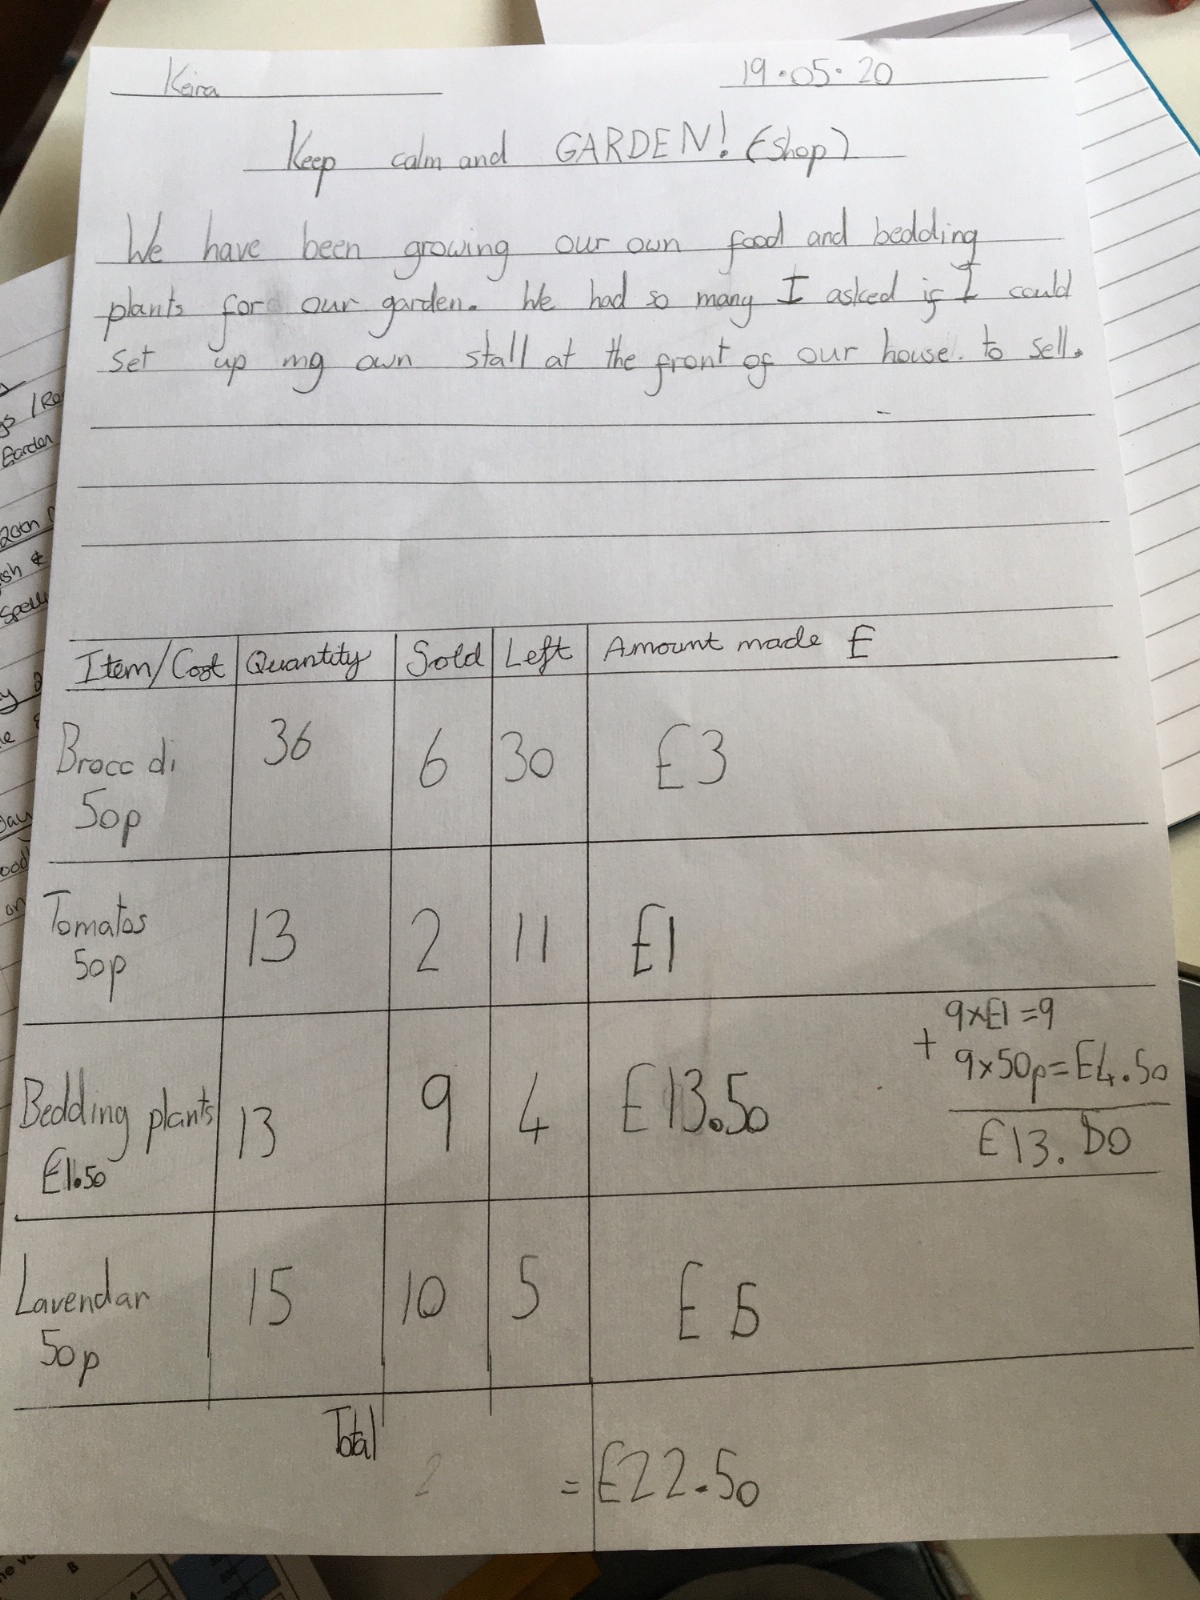 Keira 19.05.20
Keep calm and GARDEN! (Shop)
We have been growing our own food and bedding
plants for our garden. We had so many I asked if I could
set up my own stall at the front of our house. to sell.
Item/Cost Quantity Sold Left Amount made £
Broccoli 36 6 30 £3
50p
Tomatos 13 2 11 £1
50p
9x£1=9
+ 9x50p=£4.50
Bedding plants 13 9 4 £13.50 £13.50
£1.50
Lavendar 15 10 5 £5
50p
Total
2 = £22.50
Garden
20th